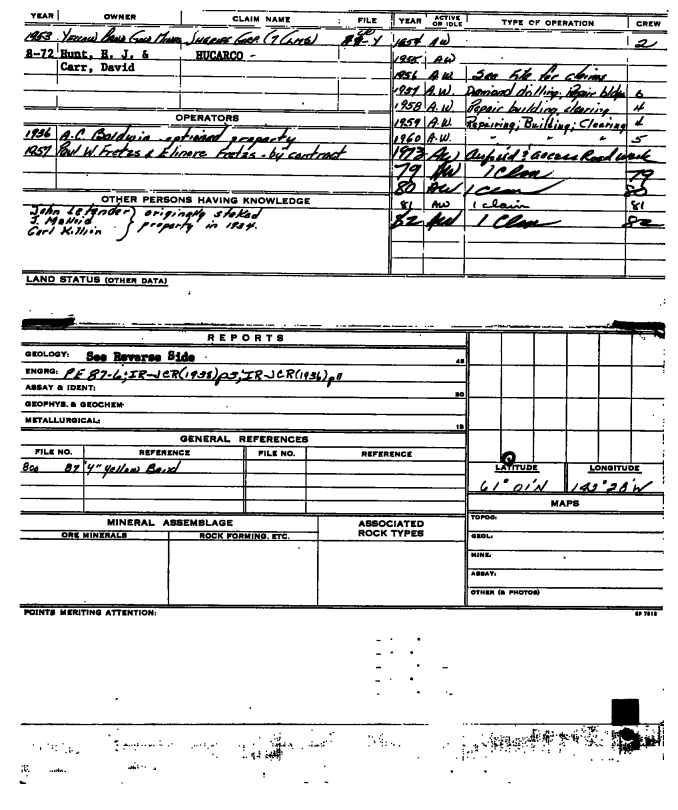 YEAR OWNER CLAIM NAME FILE YEAR ACTIVE OR IDLE TYPE OF OPERATION CREW
1953 Yellow Band Gold Mines Sheriff Corp. (7 Clms) 1954 AW 2
8-72 Hunt, H. J. & HUCARCO - 1955 AW
Carr, David 1956 A.W. See File for claims
1957 A.W. Diamond drilling, Repair bldgs 6
1958 A.W. Repair building, clearing 4
OPERATORS 1959 A.W. Repairing; Building; Clearing 4
1936 A.C. Baldwin - optioned property 1960 A.W. " " " 5
1957 Paul W. Fretzs & Elinore Fretzs - by contract 1973 AW & access Road work
79 AW 1 Claim 79
80 AW 1 Claim 80
OTHER PERSONS HAVING KNOWLEDGE 81 AW 1 claim 81
John Letender } originally staked 82 AW 1 Claim 82
J. Mathid } property in 1934.
Carl Killion
LAND STATUS (OTHER DATA)
REPORTS
GEOLOGY: See Reverse Side 45
ENGRG: PE 87-6; IR-JCR(1938)p3; IR-JCR(1936)p11
ASSAY & IDENT: 30
GEOPHYS. & GEOCHEM:
METALLURGICAL: 15
GENERAL REFERENCES
FILE NO. REFERENCE FILE NO. REFERENCE
87 "Y" Yellow Band
LATITUDE LONGITUDE
61° 01'N 142° 28'W
MAPS
MINERAL ASSEMBLAGE ASSOCIATED ROCK TYPES
ORE MINERALS ROCK FORMING, ETC.
TOPOG:
GEOL:
MINE:
ASSAY:
OTHER (& PHOTOS)
POINTS MERITING ATTENTION: SP 7918